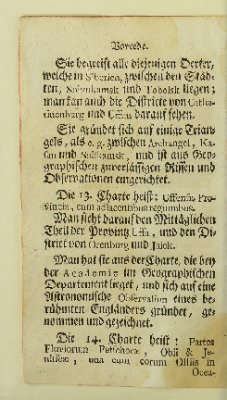 Vorrede.
Sie begreift alle diejenigen Oerter,
welche in Siberien, zwischen den Städ-
ten, Solenkamsk und Tobolsk liegen;
man kan auch die Districte von Catha-
rinenburg und Uffa darauf sehen.
Sie gründet sich auf einige Trian-
gels, als e. g. zwischen Archangel, Ka-
san und Solikamsk, und ist aus Geo-
graphischen zuverlässigen Rissen und
Observationen eingerichtet.
Die 13. Charte heist: Uffensis Pro-
vincia, cum adjacentibus regionibus.
Man sieht darauf den Mittäglichen
Theil der Provinz Uffa, und den Di-
strict von Orenburg und Jaick.
Man hat sie aus der Charte, die bey
der Academie im Geographischen
Departement lieget, und sich auf eine
Astronomische Observation eines be-
rühmten Engländers gründet, ge-
nommen und gezeichnet.
Die 14. Charte heist: Partes
Fluviorum Petschorae, Obii & Je-
niseae, una cum eorum Ostiis in
Ocea-